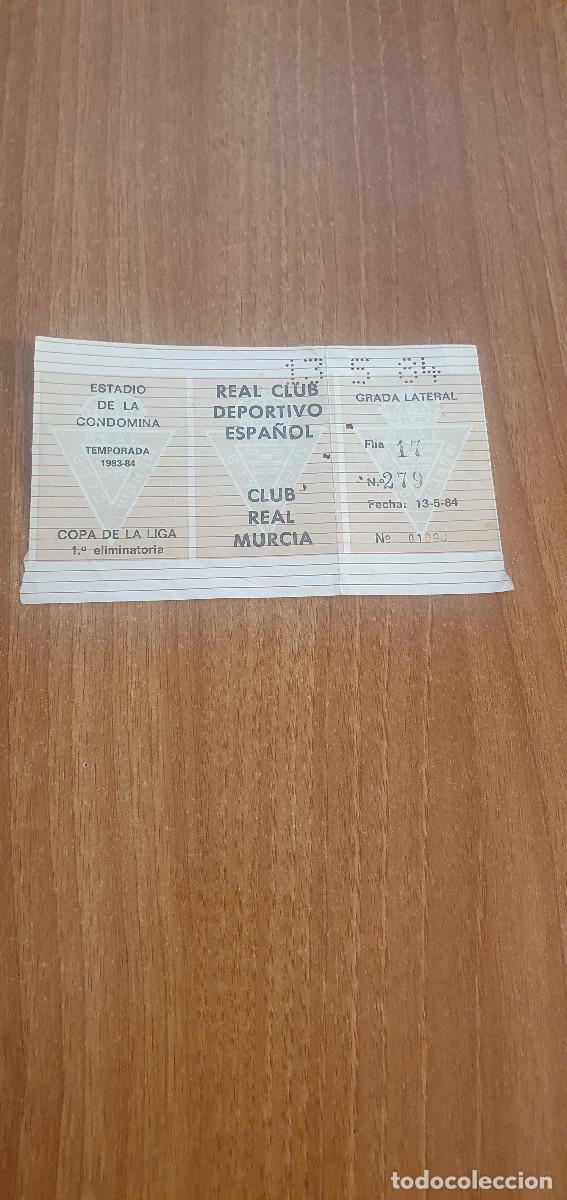 13 5 84
ESTADIO
DE LA
CONDOMINA
TEMPORADA
1983-84
COPA DE LA LIGA
1.ª eliminatoria
REAL CLUB
DEPORTIVO
ESPAÑOL
CLUB
REAL
MURCIA
GRADA LATERAL
Flia 17
N.º 279
Fecha: 13-5-84
Nº
todocoleccion